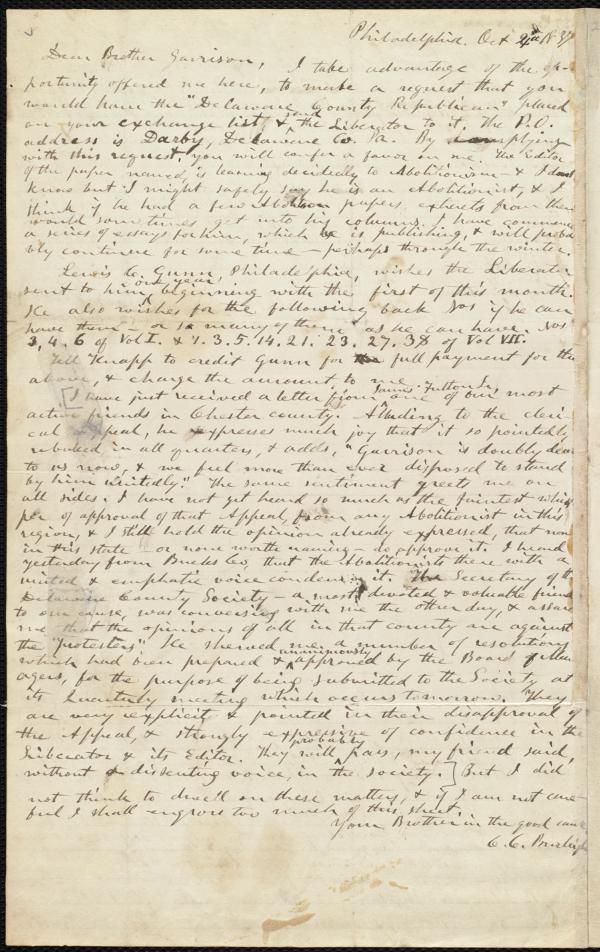 Philadelphia. Oct 4th 1837
Dear Brother Garrison,
I take advantage of the op-
portunity offered me here, to make a request that you
would have the "Delaware County Republican" placed
on your exchange list, & send the Liberator to it. The P.O.
address is Darby, Delaware Co. Pa. By complying
with this request, you will confer a favor on me. The Editor
of the paper named, is leaning decidedly to Abolitionism - & I dont
know but I might safely say he is an Abolitionist, & I
think if he had a few Abolition papers, extracts from them
would sometimes get into his columns. I have commenc
a series of essays for him, which he is publishing, & will proba
bly continue for some time - perhaps through the winter.
Lewis C. Gunn, Philadelphia, wishes the Liberator
sent to him one year beginning with the first of this month.
He also wishes for the following back Nos if he can
have them - or as many of them as he can have. Nos
3, 4, 6 of Vol I. & 1. 3. 5. 14. 21. 23. 27. 38 of Vol VII.
Tell Knapp to credit Gunn for full payment for the
above, & charge the amount to me.
[I have just received a letter from James Fulton Jr, one of our most
active friends in Chester county. Alluding to the cleri-
cal appeal, he expresses much joy that it so pointedly
rebuked in all quarters, & adds, "Garrison is doubly dear
to us now, & we feel more than ever disposed to stand
by him unitedly." The same sentiment greets me on
all sides. I have not yet heard so much as the faintest whis
per of approval of that Appeal, from any Abolitionist in this
region, & I still hold the opinion already expressed, that none
in this state - or none worth naming - do approve it. I heard
yesterday from Bucks Co, that the Abolitionists there with a
united & emphatic voice condemn it. The Secretary of the
Delaware County Society - a most devoted & valuable friend
to our cause, was conversing with me the other day, & assure
me that the opinions of all in that county are against
the "protesters". He shewed me a number of resolutions
which had been prepared & unanimously approved by the Board of Man
agers, for the purpose of being submitted to the Society at
its Quarterly meeting which occurs tomorrow. They
are very explicit & pointed in their disapproval of
the Appeal, & strongly expressive of confidence in the
Liberator & its Editor. They will probably pass, my friend said,
without a dissenting voice, in the society.] But I did
not think to dwell on these matters, & if I am not care-
ful I shall engross too much of this sheet.
Your Brother in the good cause
C. C. Burleigh